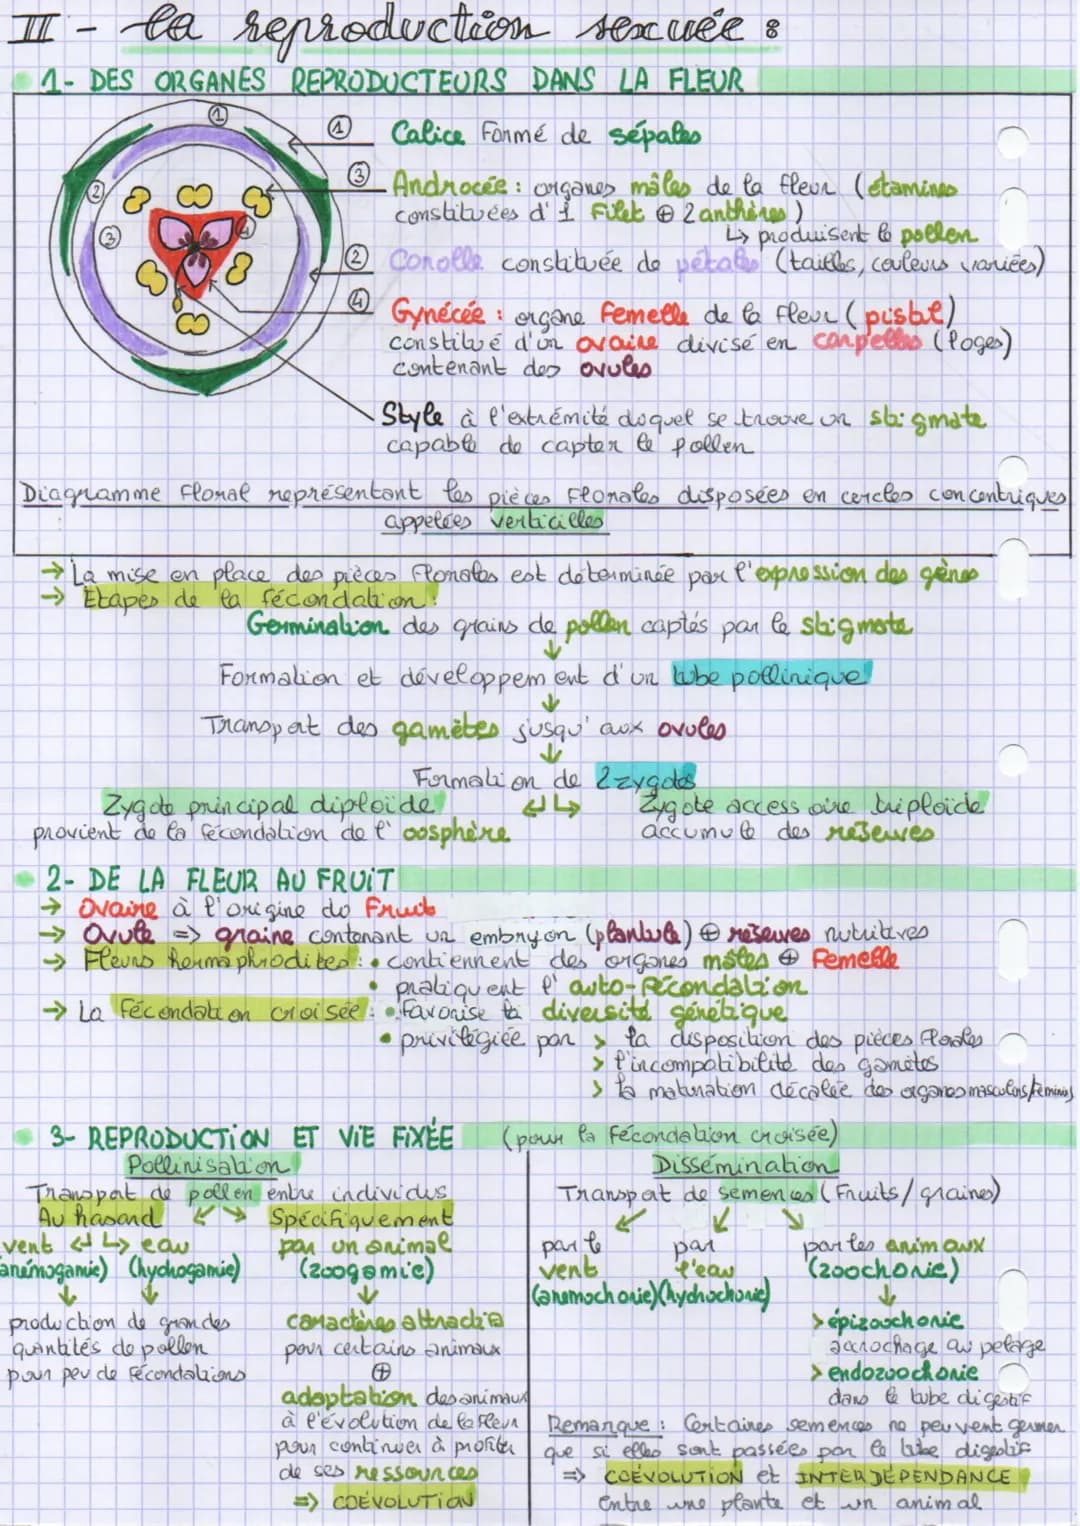 II - La reproduction sexuée :
1- DES ORGANES REPRODUCTEURS DANS LA FLEUR
① Calice formé de sépales
③ Androcée : organes mâles de la fleur (étamines
constituées d' 1 filet ⊕ 2 anthères)
↳ produisent le pollen
② Corolle constituée de pétales (tailles, couleurs variées)
④ Gynécée : organe femelle de la fleur (pistil)
constitué d'un ovaire divisé en carpelles (loges)
contenant des ovules
Style à l'extrémité duquel se trouve un stigmate
capable de capter le pollen
① ② ③ ④
Diagramme floral représentant les pièces florales disposées en cercles concentriques
appelées verticilles
→ La mise en place des pièces florales est déterminée par l'expression des gènes
→ Étapes de la fécondation :
Germination des grains de pollen captés par le stigmate
↓
Formation et développement d'un tube pollinique
↓
Transport des gamètes jusqu'aux ovules
↓
Formation de 2 zygotes
Zygote principal diploïde ↲ ↳ Zygote accessoire triploïde
provient de la fécondation de l'oosphère accumule des réserves
2- DE LA FLEUR AU FRUIT
→ Ovaire à l'origine du fruit
→ Ovule => graine contenant un embryon (plantule) ⊕ réserves nutritives
→ Fleurs hermaphrodites : • contiennent des organes mâles ⊕ femelle
• pratiquent l'auto-fécondation
→ La fécondation croisée : • favorise la diversité génétique
• privilégiée par > la disposition des pièces florales
> l'incompatibilité des gamètes
> la maturation décalée des organes masculins/féminins
3- REPRODUCTION ET VIE FIXÉE (pour la fécondation croisée)
Pollinisation
Transport de pollen entre individus
Au hasard ↙ ↘ Spécifiquement
vent ↲ ↳ eau par un animal
(anémogamie) (hydrogamie) (zoogamie)
↓ ↓ ↓
production de grandes caractères attractifs
quantités de pollen pour certains animaux
pour peu de fécondations ⊕
adaptation des animaux
à l'évolution de la fleur
pour continuer à profiter
de ses ressources
=> COÉVOLUTION
Dissémination
Transport de semences (fruits/graines)
↙ ↓ ↘
par le par par les animaux
vent l'eau (zoochorie)
(anémochorie) (hydrochorie) ↓
> épizoochorie
accrochage au pelage
> endozoochorie
dans le tube digestif
Remarque : Certaines semences ne peuvent germer
que si elles sont passées par le tube digestif
=> COÉVOLUTION et INTERDÉPENDANCE
entre une plante et un animal